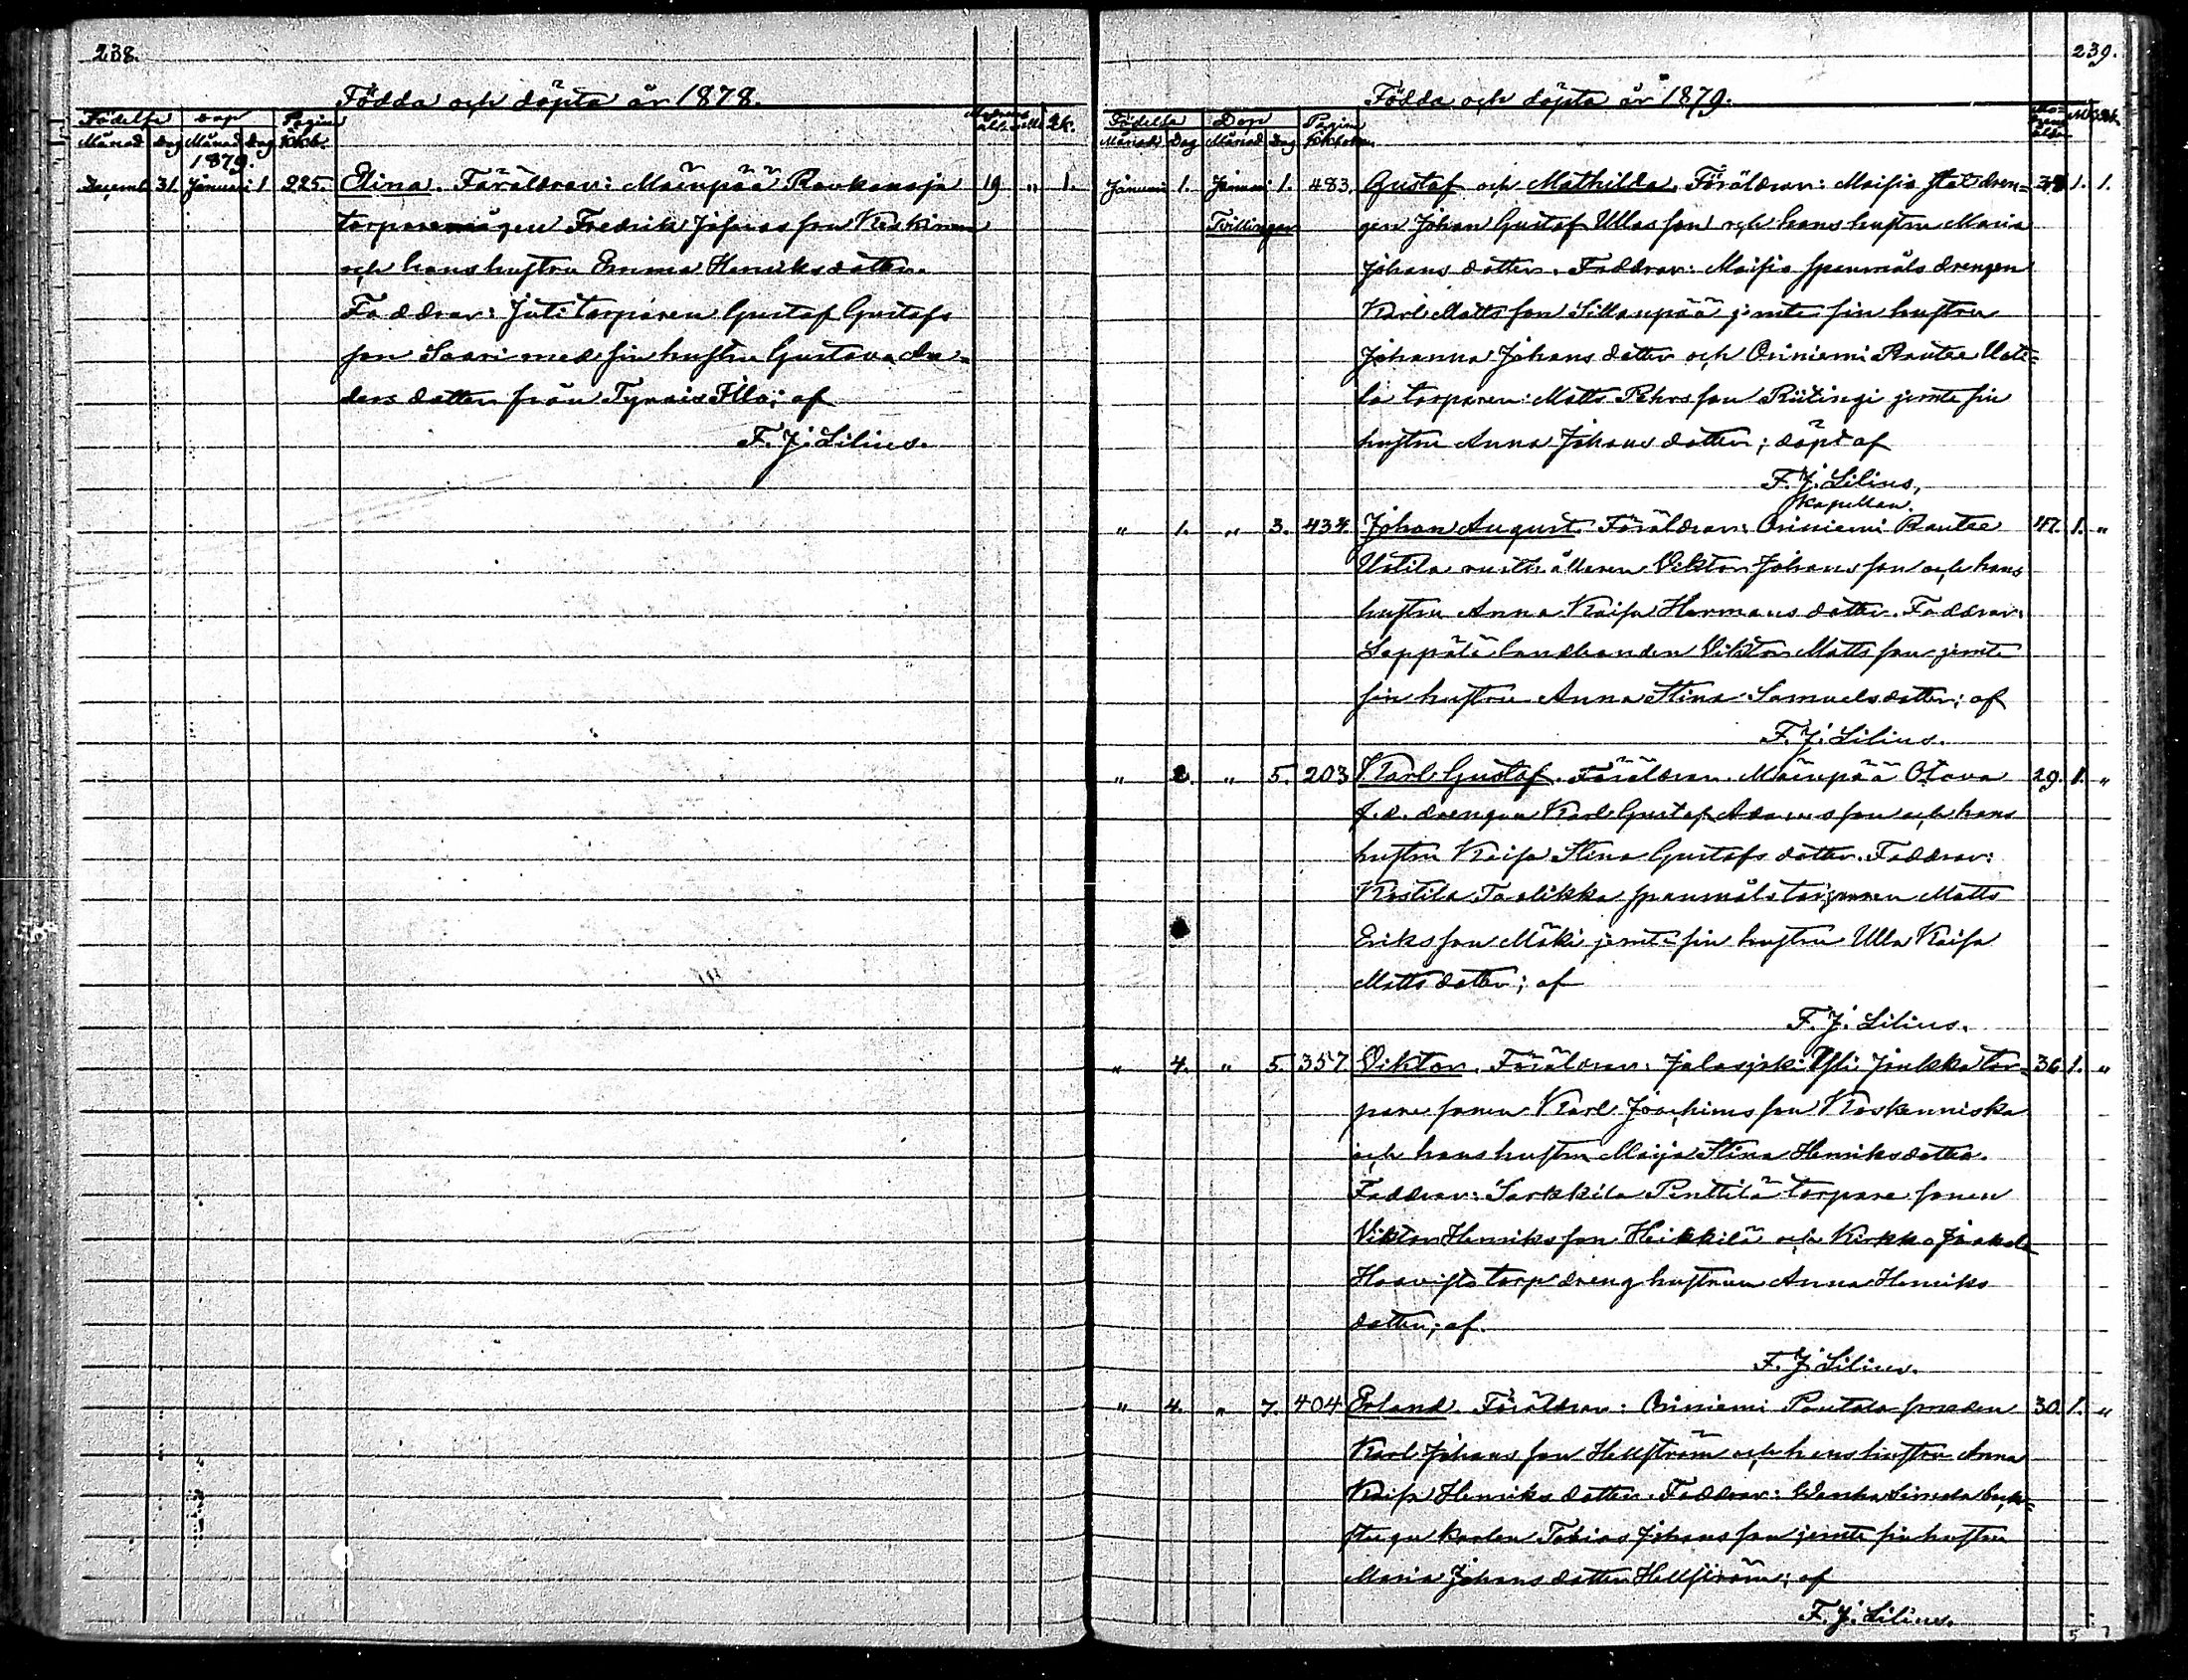 238.
Födda och döpta år 1878.
Födelse Dop Pagina
Månad Dag Månad Dag
1879.
Decemb. 31. Januari 1 225. Elina. Föräldrar: Mäenpää Raukanoja 19 „ 1.
torparemågen Fredrik Josefsson Keskinen
och hans hustru Emma Henriksdotter.
Faddrar: Juti torparen Gustaf Gustafs
son Saari med sin hustru Gustava An=
dersdotter från Tyrvis Illo; af
F. J. Lilius.
239.
Födda och döpta år 1879.
Födelse Dop Pagina
Månad Dag Månad Dag
Januari 1. Januari 1. 483. Gustaf och Mathilda. Föräldrar: Maisia statdren= 1. 1.
Tvillingar gen Johan Gustaf Ullasson och hans hustru Maria
Johansdotter. Faddrar: Maisia spanmålsdrengen
Karl Mattsson Sillanpää jemte sin hustru
Johanna Johansdotter och Oriniemi Rautee Uoti=
la torparen Matts Pehrsson jemte sin
hustru Anna Johansdotter; döpt af
F. J. Lilius,
Kapellan.
„ 1. „ 3. 434. Johan August. Föräldrar: Oriniemi Rautee 47. 1. „
Uotila rusthållaren Viktor Johansson och hans
hustru Anna Kaisa Hermansdotter. Faddrar:
Leppälä landbonden Viktor Mattsson jemte
sin hustru Anna Stina Samuelsdotter; af
F. J. Lilius.
„ 2. „ 5. 203 Karl Gustaf. Föräldrar: Mäenpää Otava 29. 1. „
f.d. drengen Karl Gustaf Adamsson och hans
hustru Kaisa Stina Gustafsdotter. Faddrar:
Kostila Taalikka spanmålstorparen Matts
Eriksson Mäki jemte sin hustru Ulla Kaisa
Mattsdotter; af
F. J. Lilius.
„ 4. „ 5. 357 Viktor. Föräldrar: Jalasjoki Yli Juukka tor= 36 1. „
paresonen Karl Joachimsson Koskenniska
och hans hustru Maija Stina Henriksdotter.
Faddrar: Sarkkila Penttilä torparesonen
Viktor Henriksson Heikkilä och Kirkko
Haavisto torpdrenghustrun Anna Henriks
dotter; af.
F. J. Lilius.
„ 4. „ 7. 404 Erland. Föräldrar: Oriniemi smeden 30. 1. „
Karl Johansson Hellström och hans hustru Anna
Kaisa Henriksdotter. Faddrar: Simola back=
stugukarlen Tobias Johansson jemte sin hustru
Maria Johansdotter Hellström; af
F. J. Lilius.